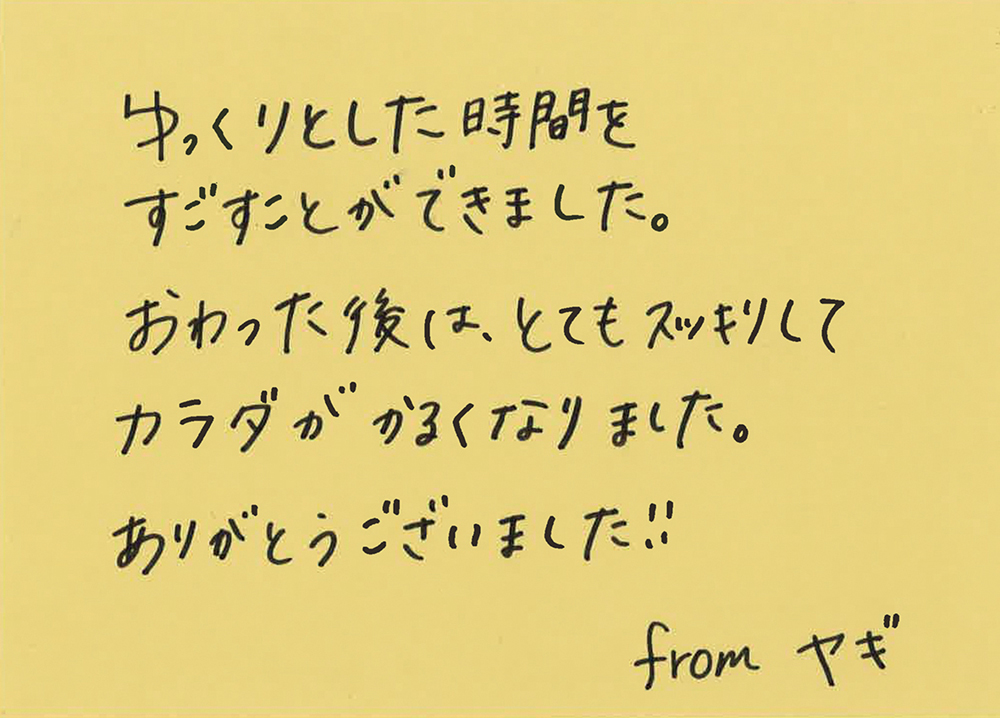 ゆっくりとした時間を
すごすことができました。
おわった後は、とてもスッキリして
カラダがかるくなりました。
ありがとうございました!!
from ヤギ